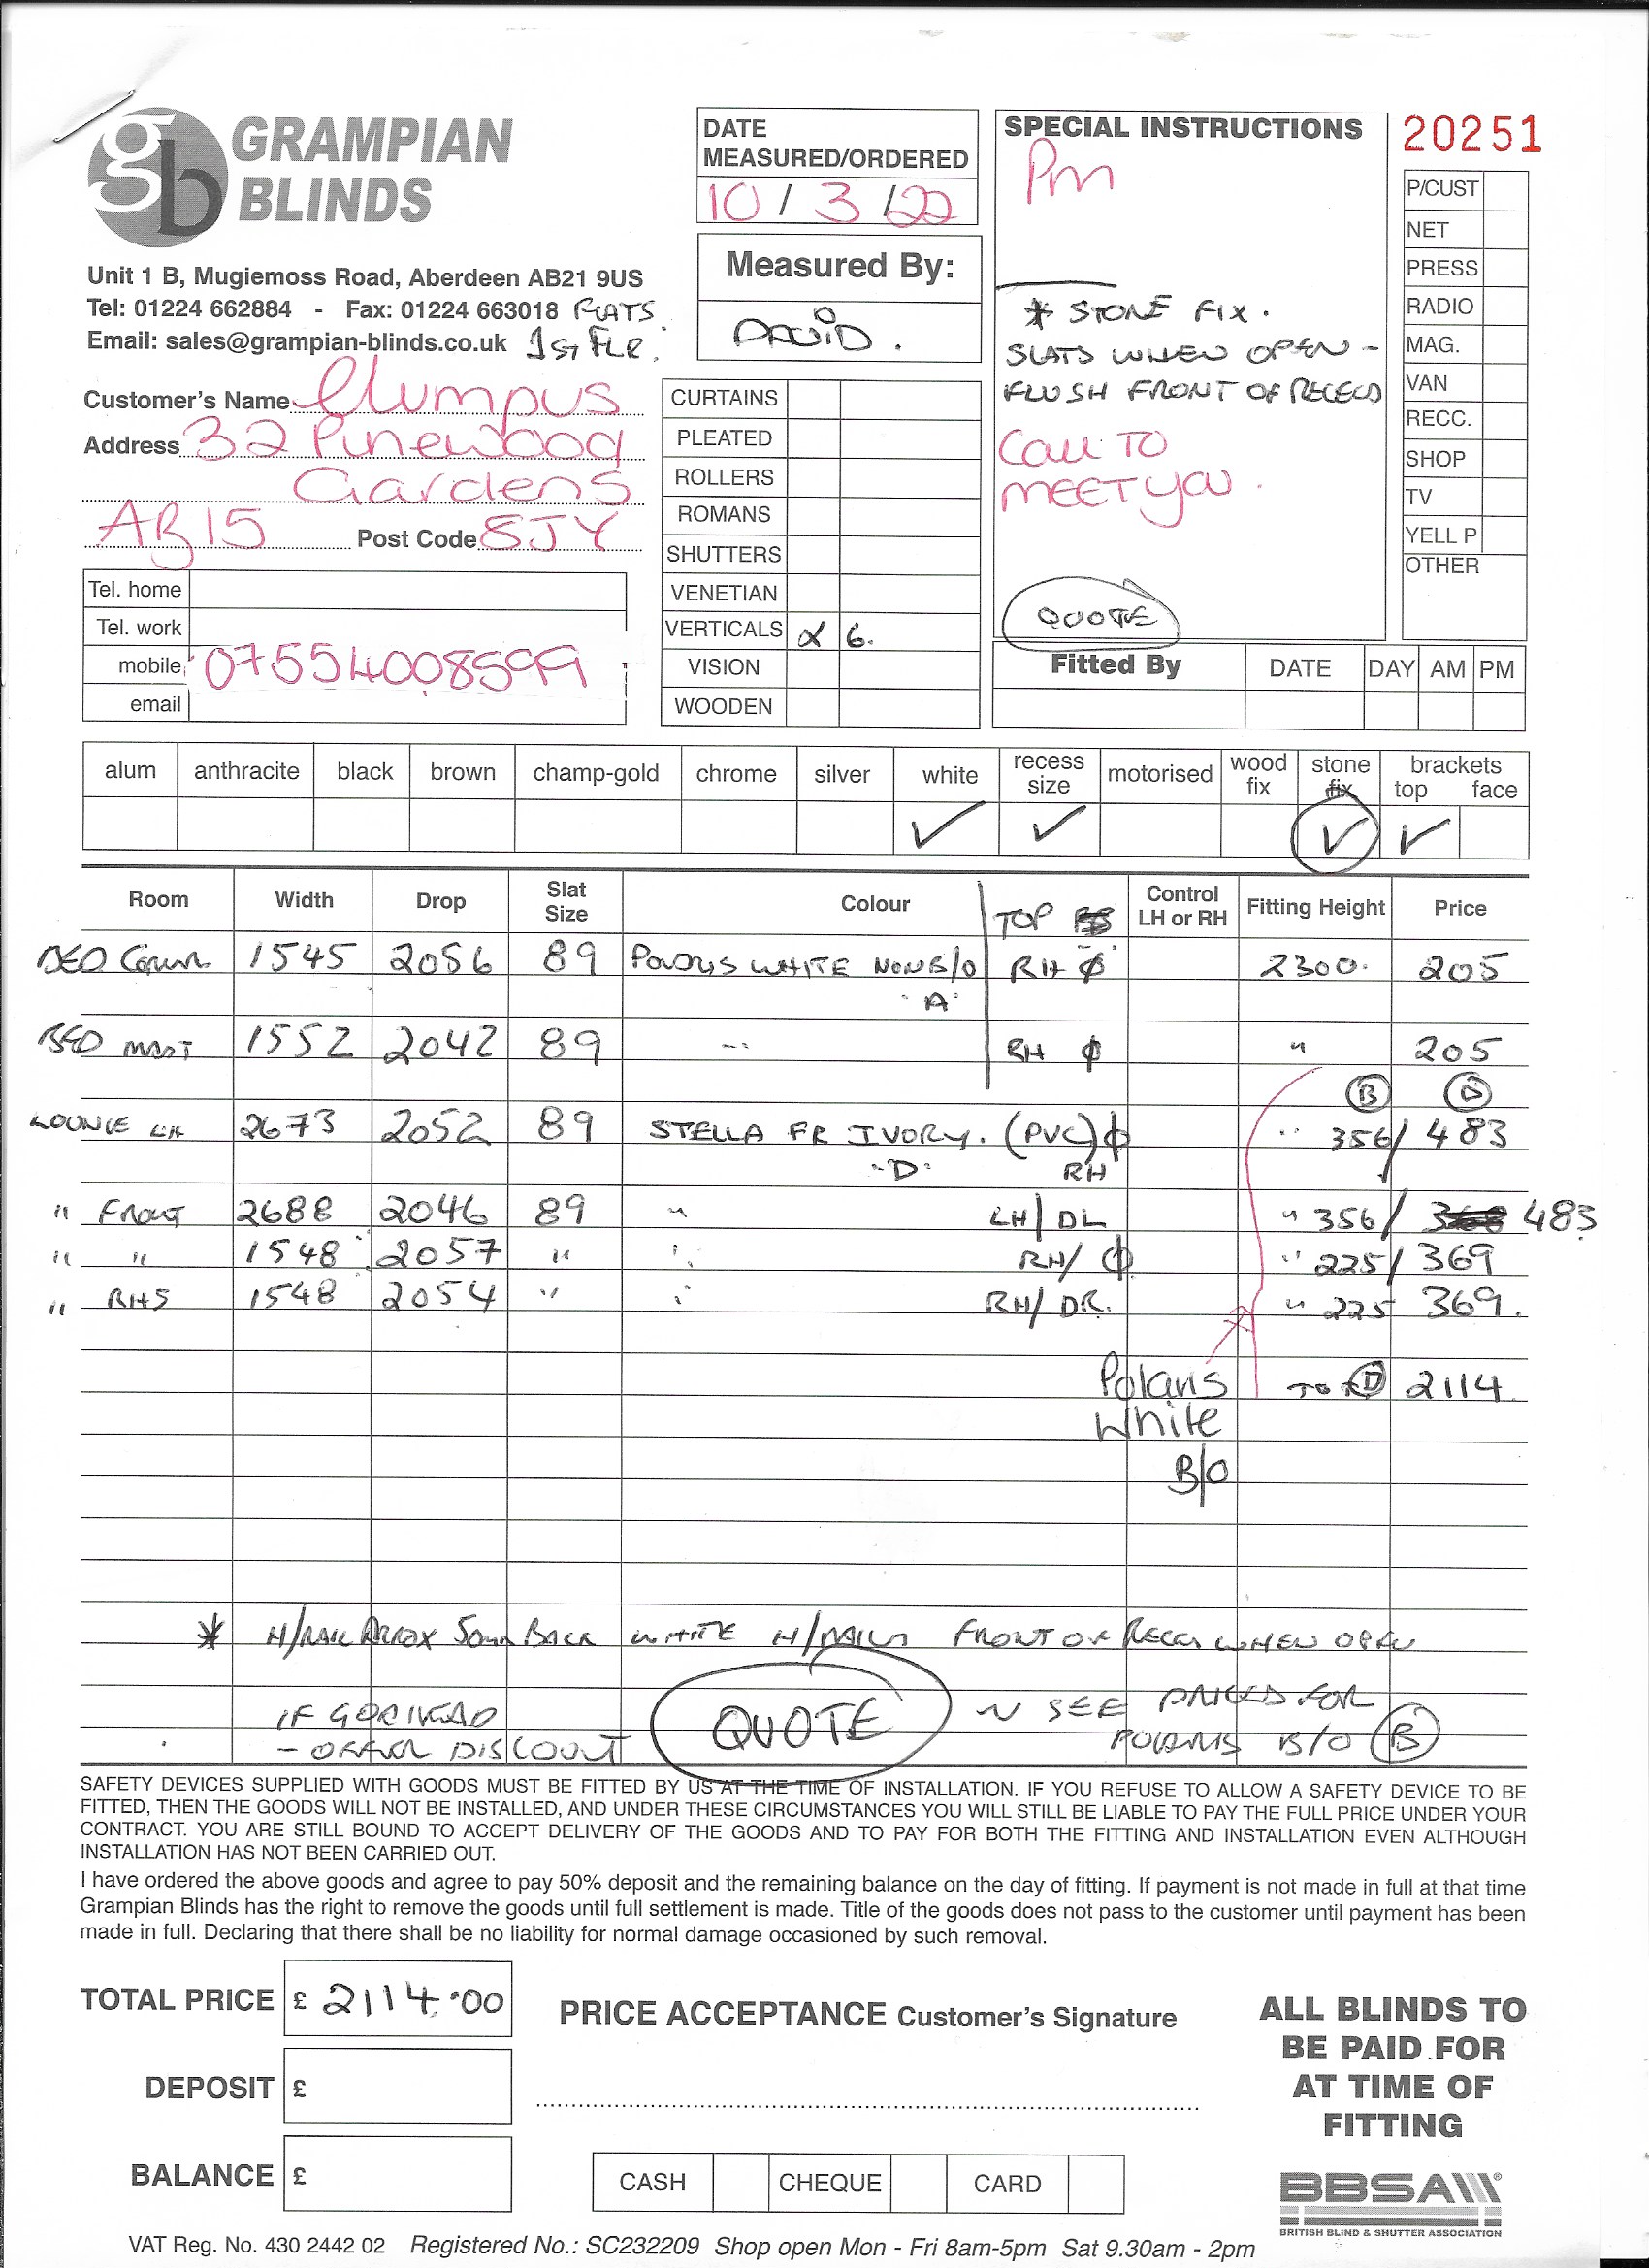 GRAMPIAN
BLINDS
Unit 1 B, Mugiemoss Road, Aberdeen AB21 9US
Tel: 01224 662884 - Fax: 01224 663018 FLATS
Email: sales@grampian-blinds.co.uk 1ST FLR.
Customer's Name Clumpus
Address 32 Pinewood
Gardens
AB15 Post Code 8JY
Tel. home
Tel. work
mobile 07554008599
email
DATE
MEASURED/ORDERED
10 / 3 / 22
Measured By:
DAVID.
CURTAINS
PLEATED
ROLLERS
ROMANS
SHUTTERS
VENETIAN
VERTICALS x 6.
VISION
WOODEN
SPECIAL INSTRUCTIONS
Pm
* STONE FIX.
SLATS WHEN OPEN -
FLUSH FRONT OF RECESS
CALL TO
MEET YOU.
QUOTE
Fitted By DATE DAY AM PM
20251
P/CUST
NET
PRESS
RADIO
MAG.
VAN
RECC.
SHOP
TV
YELL P
OTHER
alum anthracite black brown champ-gold chrome silver white recess size motorised wood fix stone fix brackets top face
✓ ✓ ✓ ✓
Room Width Drop Slat Size Colour TOP Control LH or RH Fitting Height Price
BED 1545 2056 89 POLARIS WHITE NON B/O RH 2300. 205
"A"
BED MAST 1552 2042 89 -"- RH " 205
B D
LOUNGE LH 2673 2052 89 STELLA FR IVORY. (PVC) " 356/ 483
"D" RH
" FRONT 2688 2046 89 " LH/DL " 356/ 483
" " 1548 2057 " " RH/ " 225/ 369
" RHS 1548 2054 " " RH/DR. " 225 369.
Polaris TOT D 2114.
White
B/O
* H/RAIL APPROX 50mm BACK WHITE H/RAILS FRONT OF RECESS WHEN OPEN
IF GO AHEAD QUOTE ~ SEE PRICES FOR
- OFFER DISCOUNT POLARIS B/O B
SAFETY DEVICES SUPPLIED WITH GOODS MUST BE FITTED BY US AT THE TIME OF INSTALLATION. IF YOU REFUSE TO ALLOW A SAFETY DEVICE TO BE
FITTED, THEN THE GOODS WILL NOT BE INSTALLED, AND UNDER THESE CIRCUMSTANCES YOU WILL STILL BE LIABLE TO PAY THE FULL PRICE UNDER YOUR
CONTRACT. YOU ARE STILL BOUND TO ACCEPT DELIVERY OF THE GOODS AND TO PAY FOR BOTH THE FITTING AND INSTALLATION EVEN ALTHOUGH
INSTALLATION HAS NOT BEEN CARRIED OUT.
I have ordered the above goods and agree to pay 50% deposit and the remaining balance on the day of fitting. If payment is not made in full at that time
Grampian Blinds has the right to remove the goods until full settlement is made. Title of the goods does not pass to the customer until payment has been
made in full. Declaring that there shall be no liability for normal damage occasioned by such removal.
TOTAL PRICE £ 2114.00
DEPOSIT £
BALANCE £
PRICE ACCEPTANCE Customer's Signature
CASH CHEQUE CARD
ALL BLINDS TO
BE PAID FOR
AT TIME OF
FITTING
BBSA
BRITISH BLIND & SHUTTER ASSOCIATION
VAT Reg. No. 430 2442 02 Registered No.: SC232209 Shop open Mon - Fri 8am-5pm Sat 9.30am - 2pm